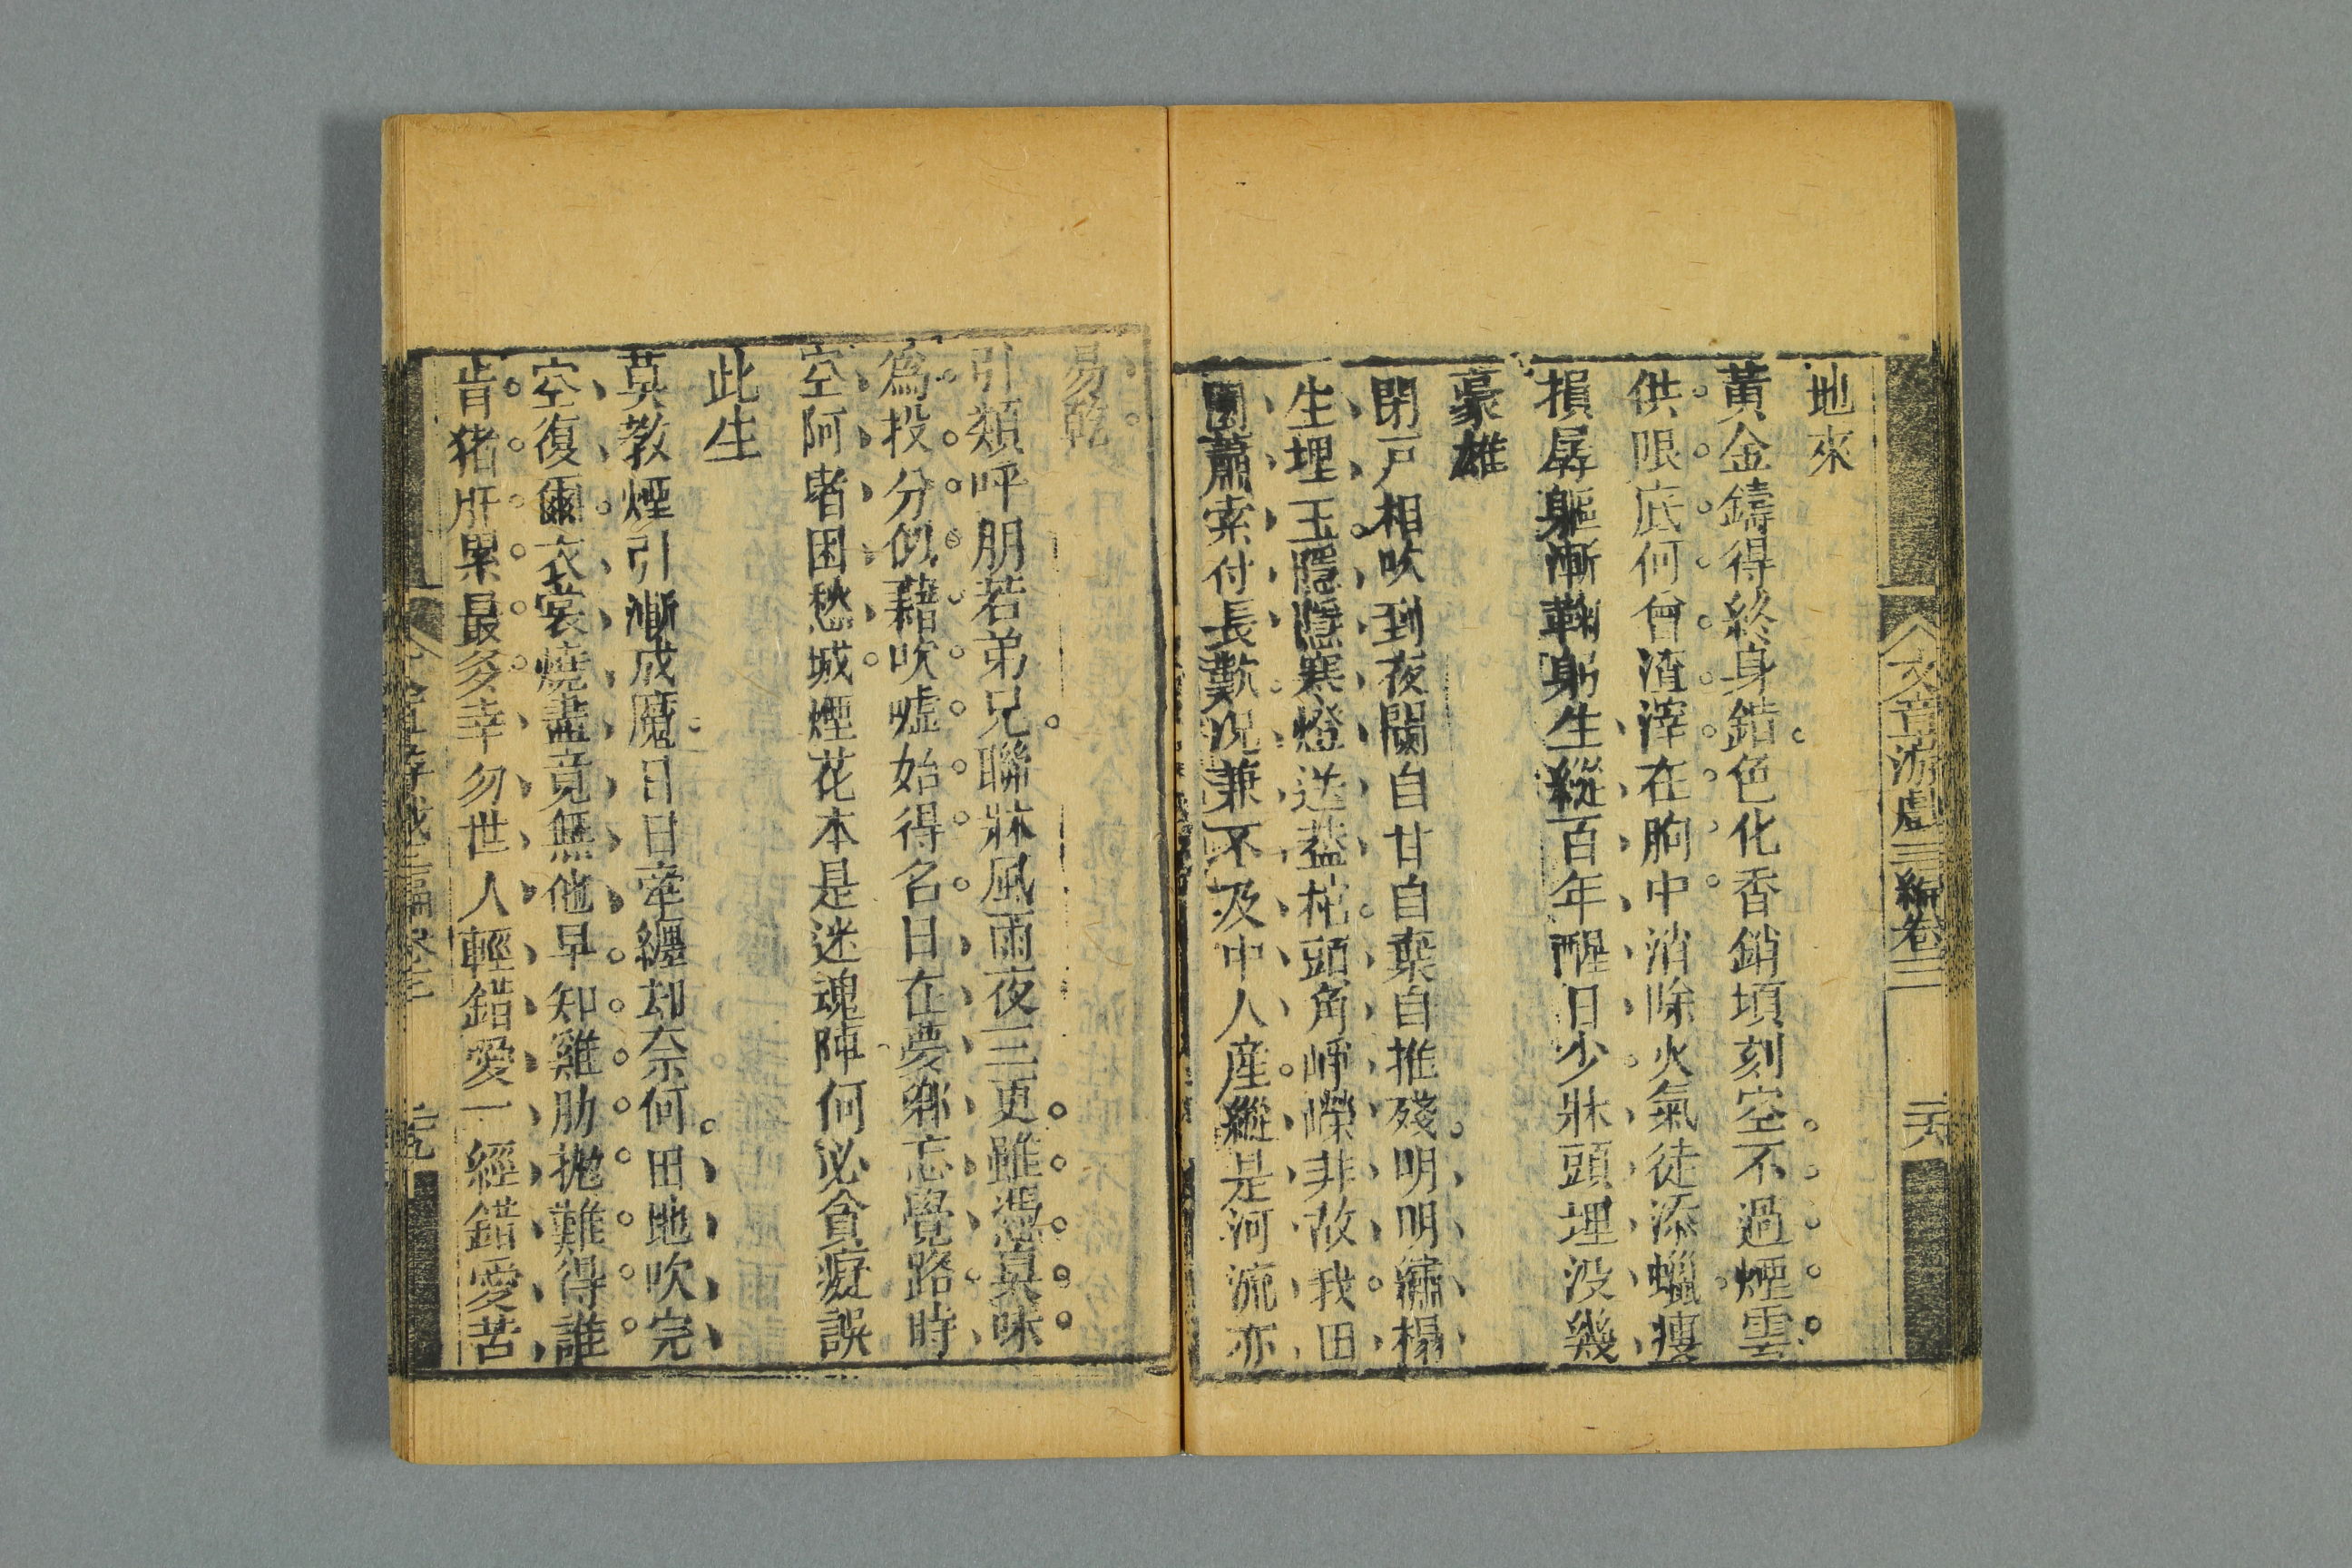 文章游戲三編卷三
二六
地來
黃金鑄得終身錯色化香銷頃刻空不過煙雲
供眼底何曾渣滓在胸中消除火氣徒添蠟瘻
損孱軀漸鞠躬生縱百年醒日少牀頭埋没幾
豪雄
閉戸相吹到夜闌自甘自棄自推殘明明繡榻
生埋玉隱隱寒燈送葢棺頭角崢嶸非故我田
園蕭索付長歎況兼不及中人産縱是河流亦
易乾
引類呼朋若弟兄聯牀風雨夜三更雖憑臭味
為投分似藉吹噓始得名日在夢鄉忘覺路時
空阿堵困愁城煙花本是迷魂陣何必貪癡誤
此生
莫教煙引漸成魔日日牽纏却奈何田地吹完
空復爾衣裳燒盡竟無他早知雞肋拋難得誰
肯猪肝累最多幸勿世人輕錯愛一經錯愛苦